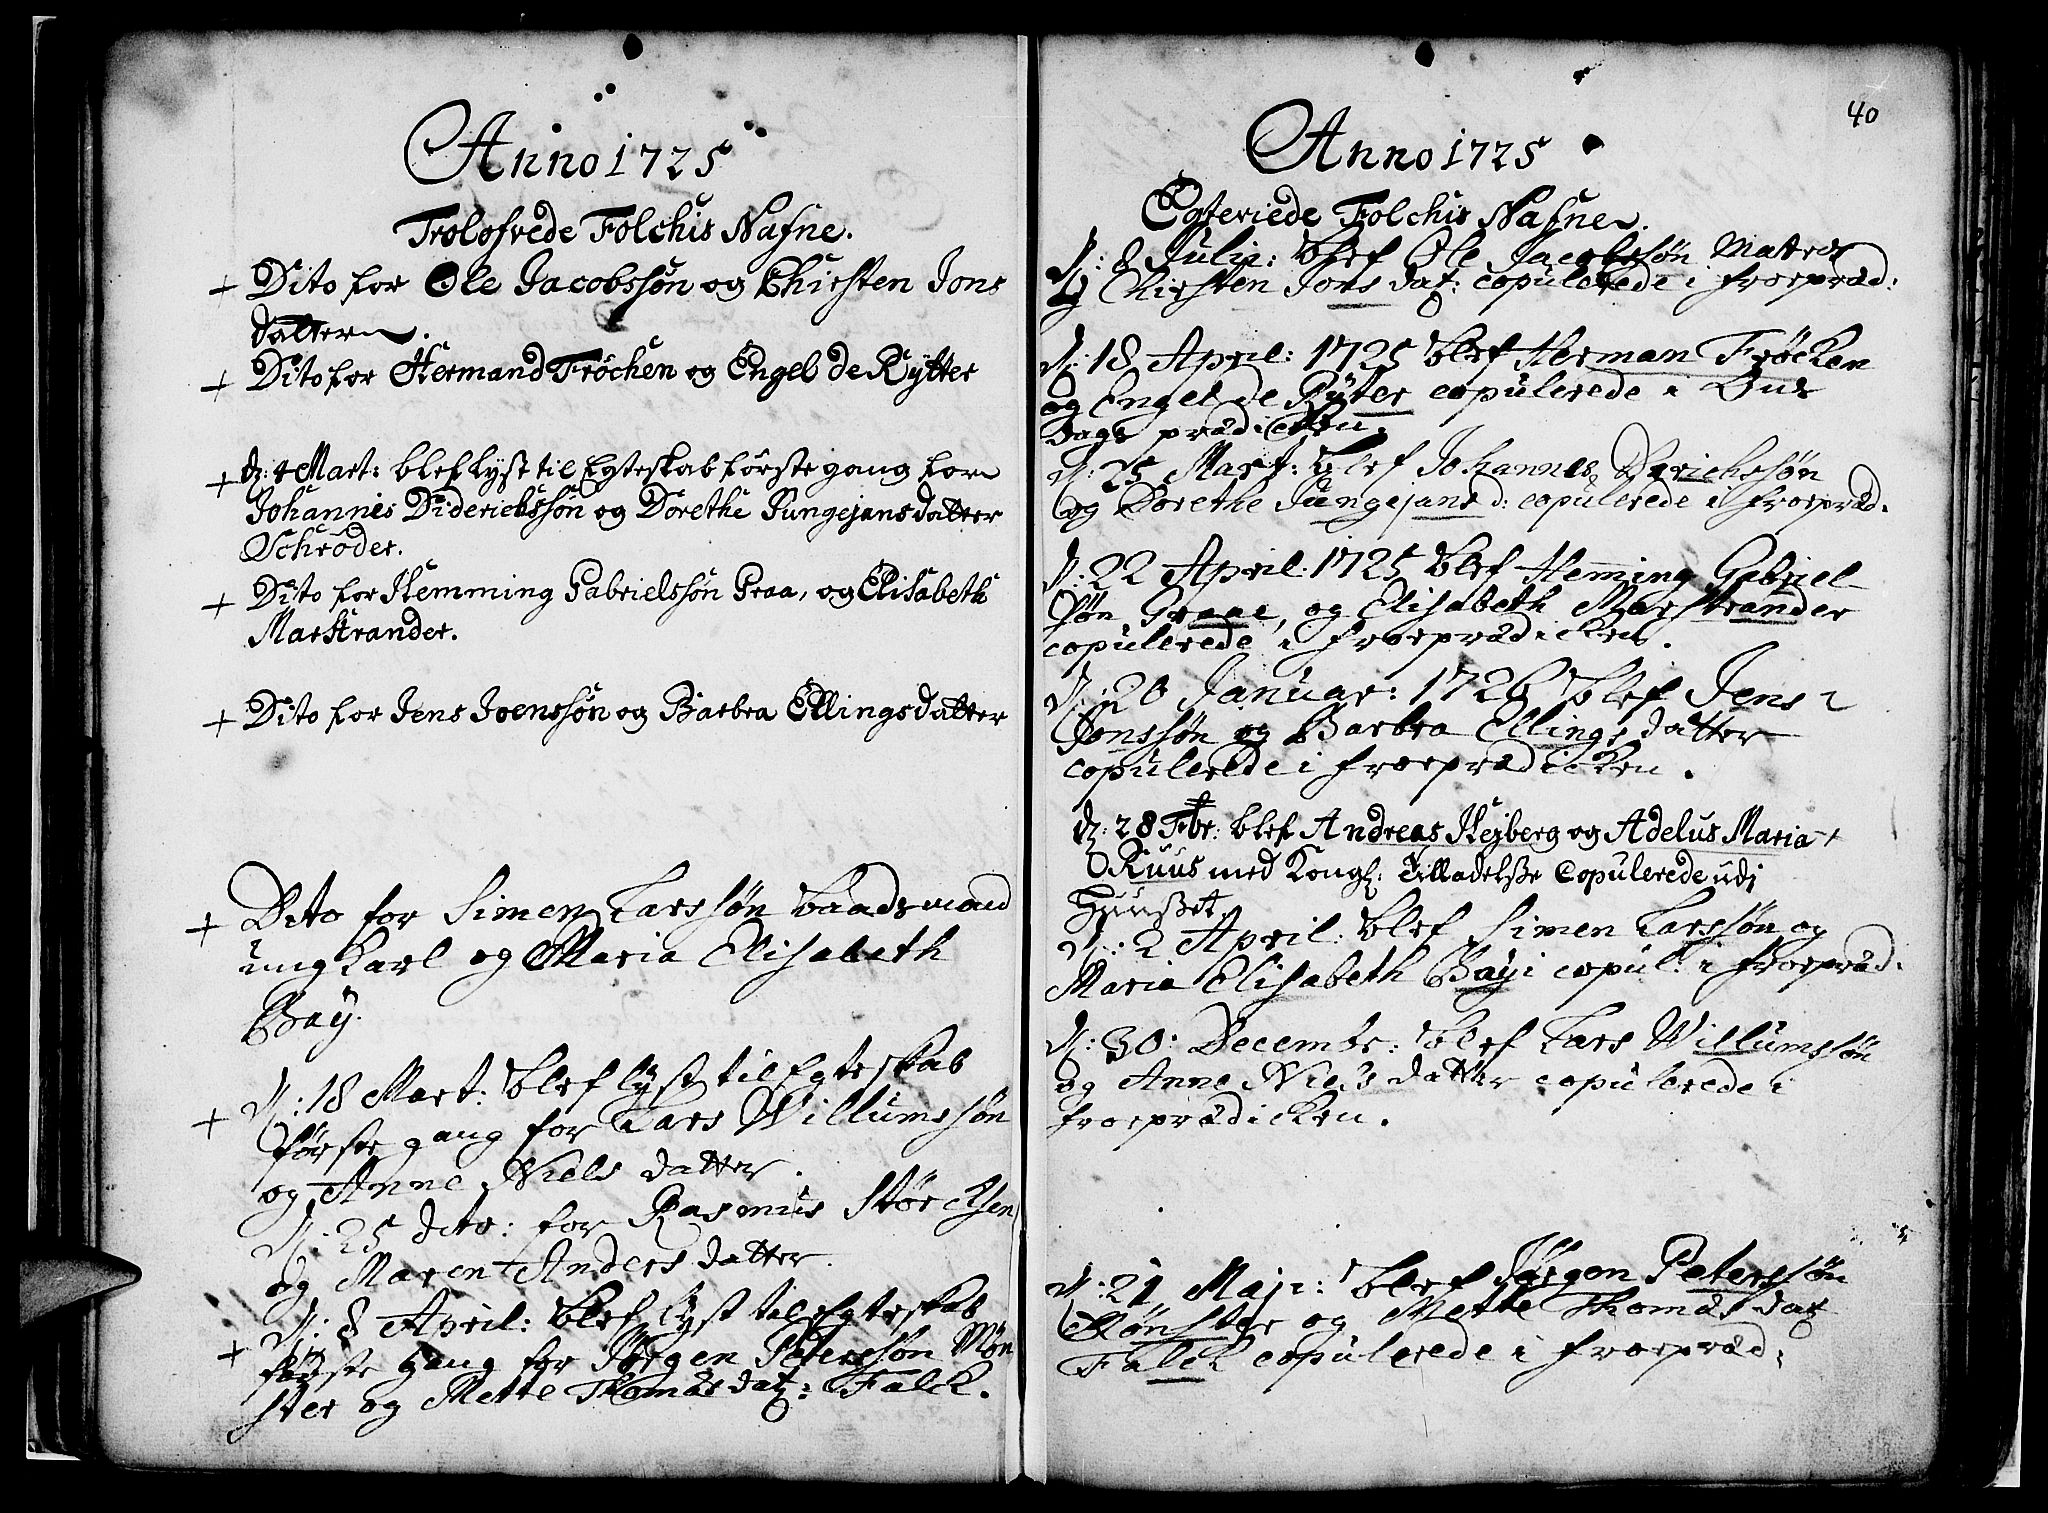 Anno 1725
Trolofvede Folchis Nafne.
+ Dito for Ole Jacobssøn og Chirsten Jons
datter.
+ Dito for Hermand Frøchen og Engel de Rytter
+ d: 4 Mart: blef lyst til Egteskab første gang for
Johannis Diderichssøn og Dorethe Jungejansdatter
Schrøder.
+ Dito for Hemming Gabrielssøn Graa, og Elisabeth
Marstrander.
+ Dito for Jens Joenssøn og Barbra Ellingsdatter
+ Dito for Simen Larssøn baadsmand
ungkarl og Maria Elisabeth
Bay.
+ d: 18 Mart: blef lyst til Egteskab
første gang for Lars Willumssøn
og Anne Niels datter.
d: 25 dito: for Rasmus Størchsen
og Maren Anders datter.
+ d: 8 April: blef lyst til Egteskab
første gang for Jørgen Peterssøn Møn
ster og Mette Thomæsdat: Falck.
40
Anno 1725
Egteviede Folchis Nafne.
d: 8 Julii: blef Ole Jacobssøn Matros
og Chirsten Jons dat: copulerede i froepræd:
d: 18 April: 1725 blef Herman Frøcken
og Engel de Ryter copulerede i Ons
dags prædicken.
d: 25 Mart: blef Johannes Derichssøn
og Dorethe Jungejans d: copulerede i froepræd:
d: 22 April: 1725 blef Hemming Gabriel
søn Graae, og Elisabeth Marstrander
copulerede i froeprædicken.
d: 20 Januar: 1726 blef Jens
Jonssøn og Barbra Ellings datter
copulerede i froeprædicken.
d: 28 Febr: blef Andreas Hejberg og Adelus Maria +
Ruus med Kongl: Tilladelsse Copulerede udj
Huusset.
d: 2 April: blef Simen Larssøn og
Maria Elisabeth Bay copul: i froepræd:
d: 30: Decembr: blef Lars Willumssøn
og Anne Niels datter copulerede i
froeprædicken.
d: 21 Maji: blef Jørgen Peterssøn
Mønster og Mette Thomæs dat
Falck copulerede i froepræd: